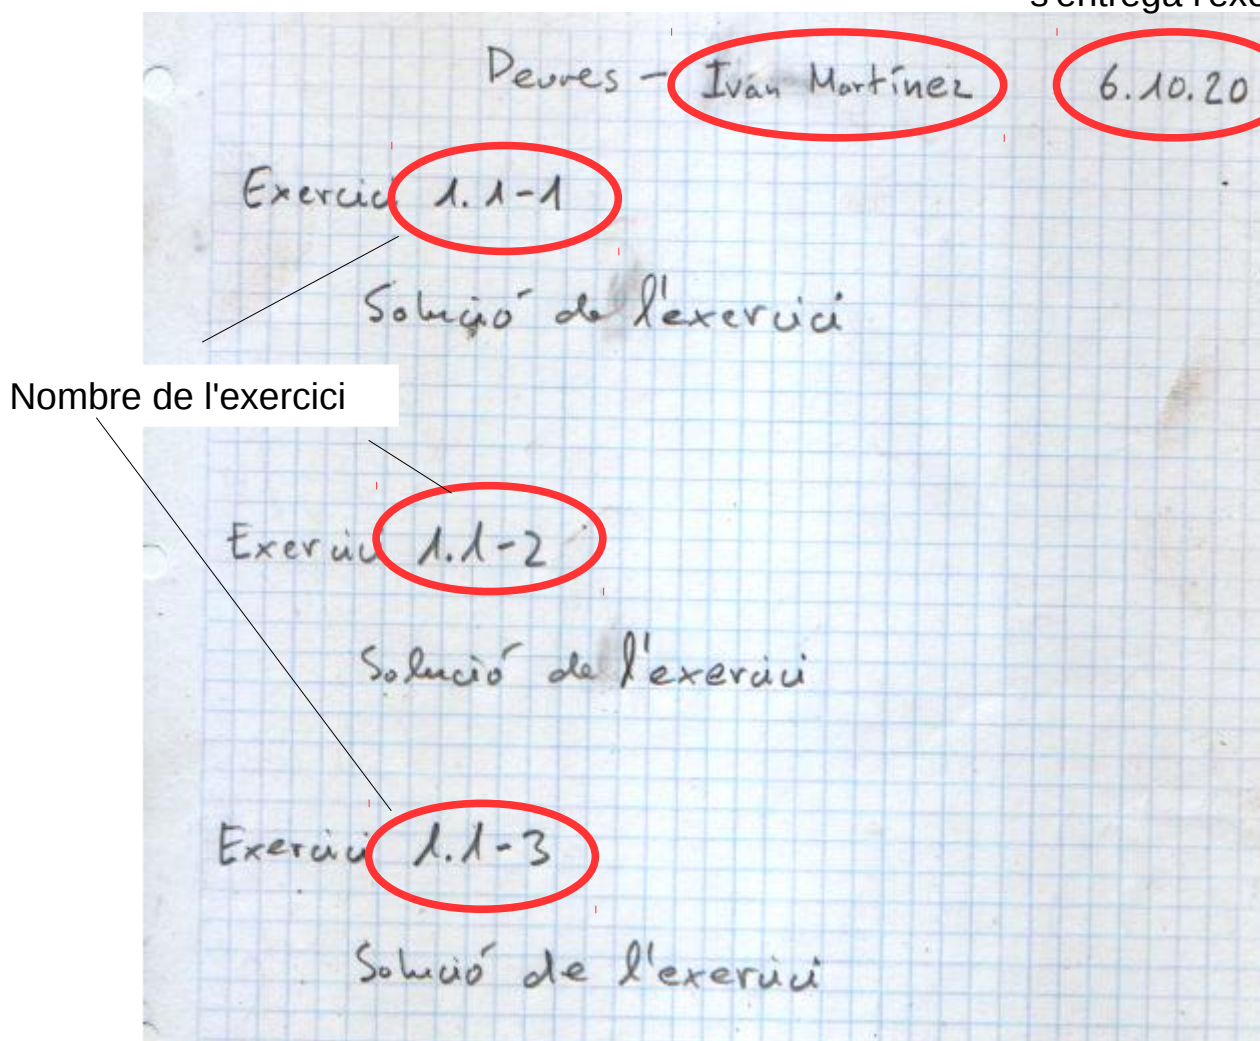 s'entrega l'exe
Deures - Iván Martínez 6.10.20
Exercici 1.1-1
Solució de l'exercici
Nombre de l'exercici
Exercici 1.1-2
Solució de l'exercici
Exercici 1.1-3
Solució de l'exercici